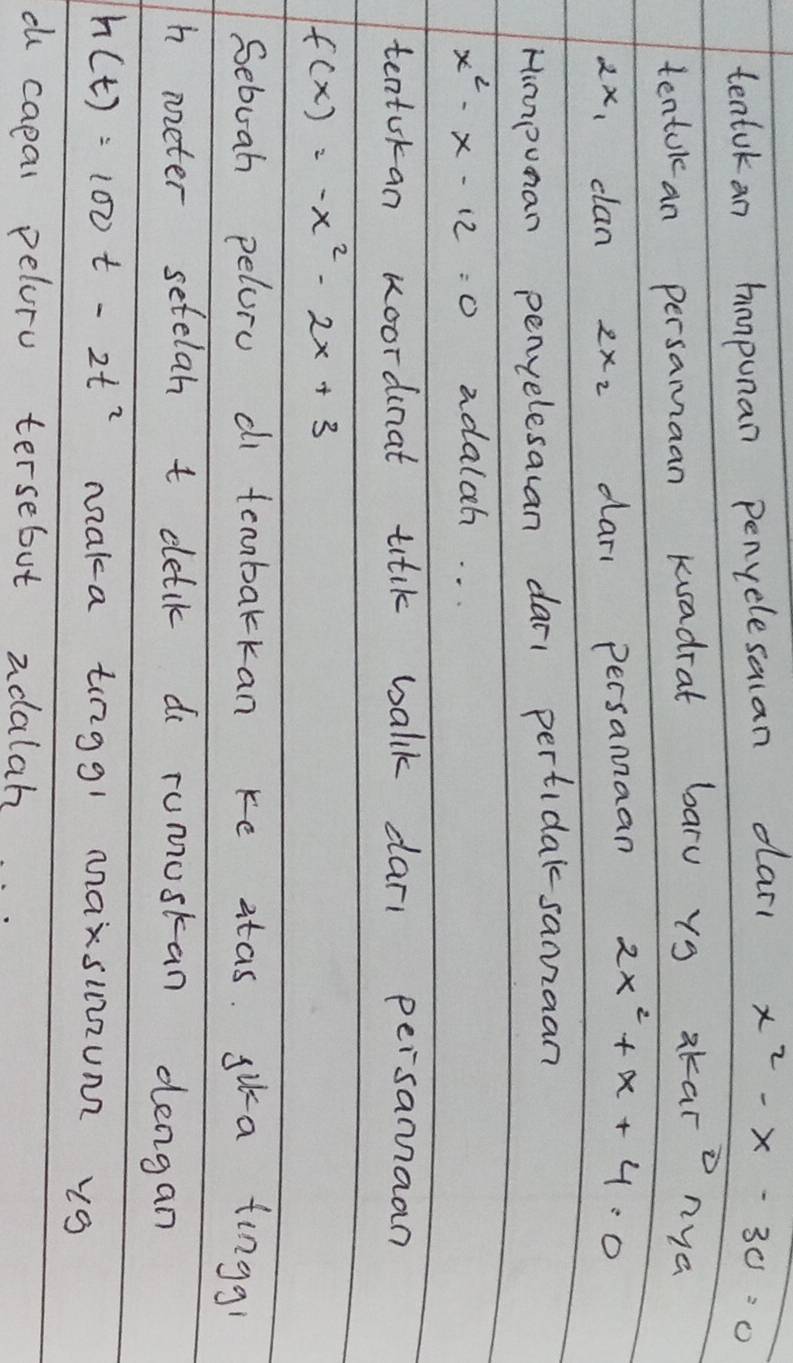 tentukan himpunan penyelesaian dari x² - x - 30 = 0
tentukan persamaan kuadrat baru yg akar² nya
2x₁ dan 2x₂ dari persamaan 2x² + x + 4 = 0
Himpunan penyelesaian dari pertidaksamaan
x² - x - 12 = 0 adalah ...
tentukan koordinat titik balik dari persamaan
f(x) = -x² - 2x + 3
Sebuah peluru di tembakkan ke atas. jika tinggi
h meter setelah t detik di rumuskan dengan
h(t) = 100t - 2t² maka tinggi maxsimum yg
di capai peluru tersebut adalah ...